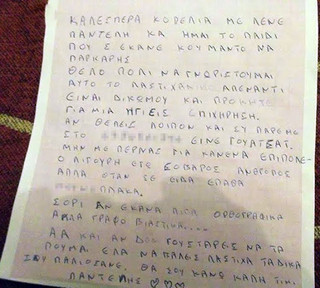 ΚΑΛΕΣΠΕΡΑ ΚΟΠΕΛΙΑ ΜΕ ΛΕΝΕ
ΠΑΝΤΕΛΗ ΚΑ ΗΜΑΙ ΤΟ ΠΑΙΔΙ
ΠΟΥ Σ ΕΚΑΝΕ ΚΟΥΜΑΝΤΟ ΝΑ
ΠΑΡΚΑΡΗΣ
ΘΕΛΟ ΠΟΛΙ ΝΑ ΓΝΩΡΙΣΤΟΥΜΑΙ
ΑΥΤΟ ΤΟ ΛΑΣΤΙΧΑΔΙΚΟ ΑΠΕΝΑΝΤΙ
ΕΙΝΑΙ ΔΙΚΩΜΟΥ ΚΑΙ ΠΡΟΚΗΤΕ
ΓΙΑ ΜΙΑ ΗΓΙΕΙΣ ΕΠΙΧΗΡΗΣΗ.
ΑΝ ΘΕΛΕΙΣ ΛΟΙΠΟΝ ΚΑΙ ΕΣΥ ΠΑΡΕ ΜΕ
ΣΤΟ ΕΙΝΕ ΓΟΥΑΤΣΑΠ.
ΜΗΝ ΜΕ ΠΕΡΝΑΣ ΓΙΑ ΚΑΝΕΝΑ ΕΠΙΠΟΛΕ-
Ο ΛΙΓΟΥΡΗ ΕΓΩ ΣΟΒΑΡΟΣ ΑΝΘΡΟΠΟΣ
ΑΛΛΑ ΟΤΑΝ ΣΕ ΕΙΔΑ ΕΠΑΘΑ
ΠΛΑΚΑ.
ΣΟΡΙ ΑΝ ΕΚΑΝΑ ΛΙΓΑ ΟΡΘΟΓΡΑΦΙΚΑ
ΑΛΛΑ ΓΡΑΦΟ ΒΙΑΣΤΙΚΑ....
ΑΑ ΚΑΙ ΑΝ ΔΕΝ ΓΟΥΣΤΑΡΕΙΣ ΝΑ ΤΑ
ΠΟΥΜΑ. ΕΛΑ ΝΑ ΑΛΑΞΕΙΣ ΛΑΣΤΙΧΑ ΤΑ ΔΙΚΑ
ΣΟΥ ΠΑΛΙΟΣΑΝΕ. ΘΑ ΣΟΥ ΚΑΝΩ ΚΑΛΗ ΤΙΜ.
ΠΑΝΤΕΛΗΣ ♡♡♡